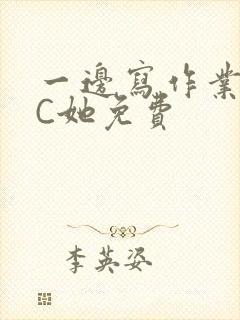 一邊寫作業
C她免費
李英姿